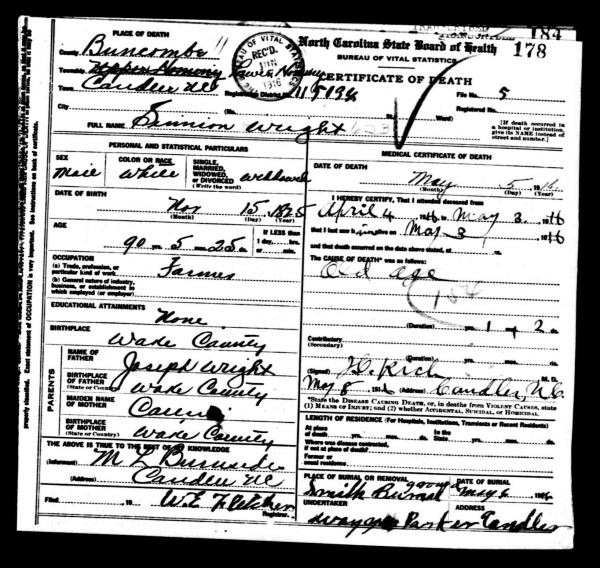 184
178
PLACE OF DEATH
County Buncombe
Township Upper Hominy Lower Hominy
Candler NC
Registration District No. 11 5194
City
(No. St.; Ward)
FULL NAME Wright
BUREAU OF VITAL STATISTICS
REC'D.
JUN
1916
North Carolina State Board of Health
BUREAU OF VITAL STATISTICS
CERTIFICATE OF DEATH
File No. 5
Registered No.
[If death occurred in a hospital or institution, give its NAME instead of street and number.]
PERSONAL AND STATISTICAL PARTICULARS
SEX
Male
COLOR OR RACE
White
SINGLE, MARRIED, WIDOWED, OR DIVORCED (Write the word)
Widowed
DATE OF BIRTH
Nov 15 1825
(Month) (Day) (Year)
AGE
90 yrs. 5 mos. 25 ds.
IF LESS than 1 day, hrs. or min.
OCCUPATION
(a) Trade, profession, or particular kind of work Farmer
(b) General nature of industry, business, or establishment in which employed (or employer)
EDUCATIONAL ATTAINMENTS
None
BIRTHPLACE
Wade County
PARENTS
NAME OF FATHER
Joseph Wright
BIRTHPLACE OF FATHER
(State or County) Wade County
MAIDEN NAME OF MOTHER
BIRTHPLACE OF MOTHER
(State or County) Wade County
THE ABOVE IS TRUE TO THE BEST OF MY KNOWLEDGE
(Informant) M L Burnside
(Address) Candler NC
Filed , 19 W.E. Fletcher
Registrar.
MEDICAL CERTIFICATE OF DEATH
DATE OF DEATH
May 5 1916
(Month) (Day) (Year)
I HEREBY CERTIFY, That I attended deceased from
April 4 1916 to May 3 1916
that I last saw him alive on May 3 1916
and that death occurred on the date above stated, at m.
The CAUSE OF DEATH* was as follows:
Old age
154
(Duration) yrs. 1 mos. 2 ds.
Contributory
(Secondary)
(Duration) yrs. mos. ds.
(Signed) M. D.
May 8 191 (Address) Candler, N.C.
*State the DISEASE CAUSING DEATH, or, in deaths from VIOLENT CAUSES, state (1) MEANS OF INJURY; and (2) whether ACCIDENTAL, SUICIDAL, or HOMICIDAL.
LENGTH OF RESIDENCE (For Hospitals, Institutions, Transients or Recent Residents)
At place of death yrs. mos. ds. In the State yrs. mos. ds.
Where was disease contracted, if not at place of death?
Former or usual residence
PLACE OF BURIAL OR REMOVAL
Smith Burial ground
DATE OF BURIAL
May 6 1916
UNDERTAKER
Parker
ADDRESS
Candler